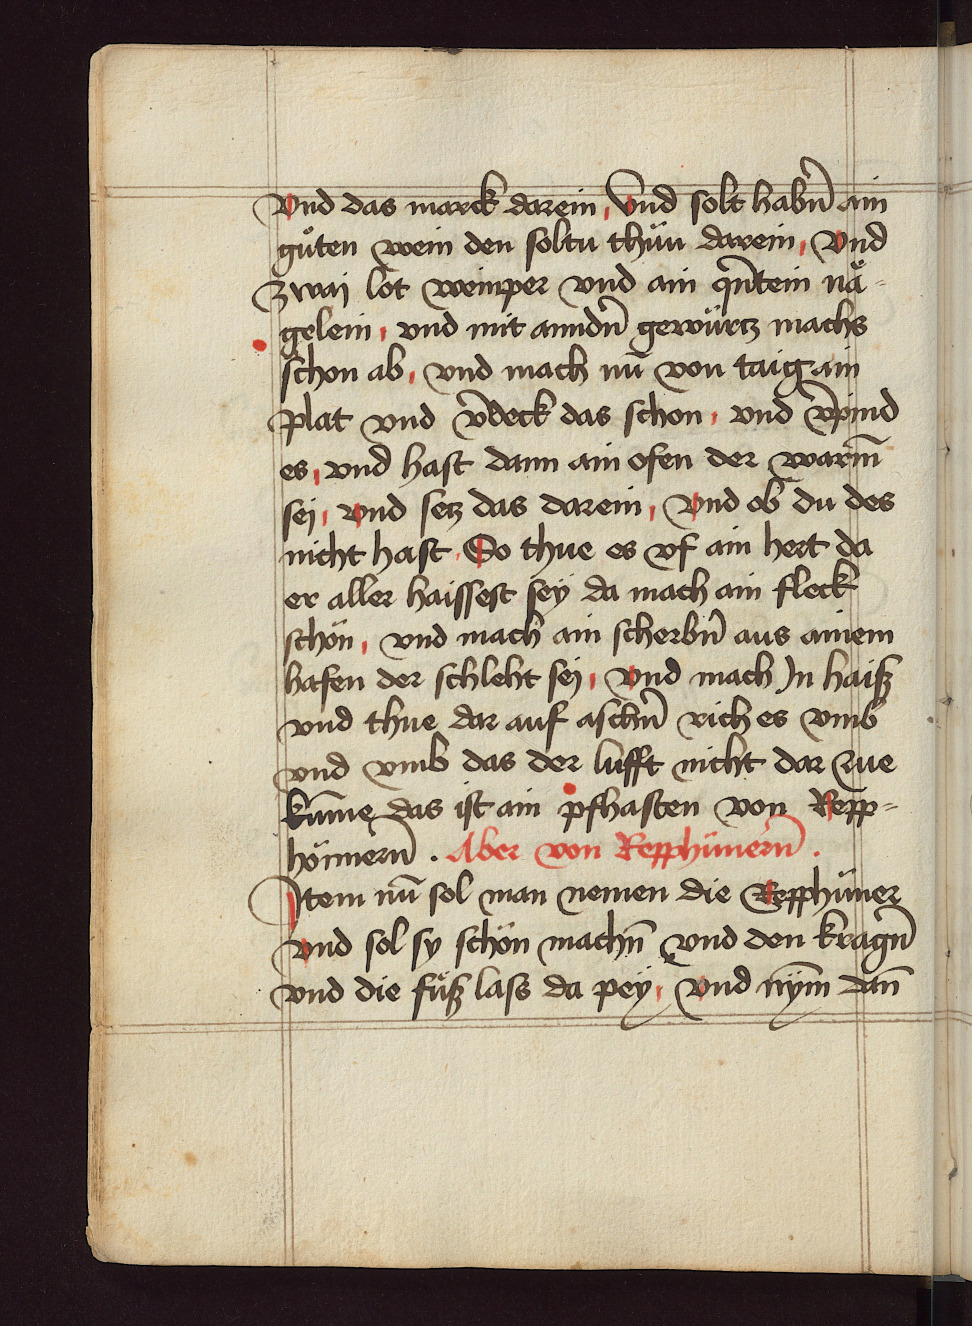 Vnd das marck darein, Vnd solt habn̄ ain
gůten wein den soltu thůn darein, Vnd
zwai lot weinper vnd ain qn̄tein nä-
gelein, vnd mit anndn̄ gewürtz machs
schon ab, vnd mach nū von taig ain
plat vnd v̄deck das schon, vnd v̄pind
es, vnd hast dann ain ofen der warm̄
sej, vnd setz das darein, Vnd ob du des
nicht hast, So thue es vf ain hert da
er aller haissest sey da mach ain fleck
schön, vnd mach ain scherbn̄ aus ainem
hafen der schleht sej, Vnd mach Jn haiß
vnd thue dar auf aschn̄ rich es vmb
vnd vmb das der lufft nicht dar zue
kūme, das ist ain pfhasten von Repp-
hönnern̄. Aber von Repphünern̄.
Item nū sol man nemen die Repphüner
vnd sol sy schön machn̄ vnd den kragn̄
vnd die füß lass da pey, Vnd nȳm dan̄